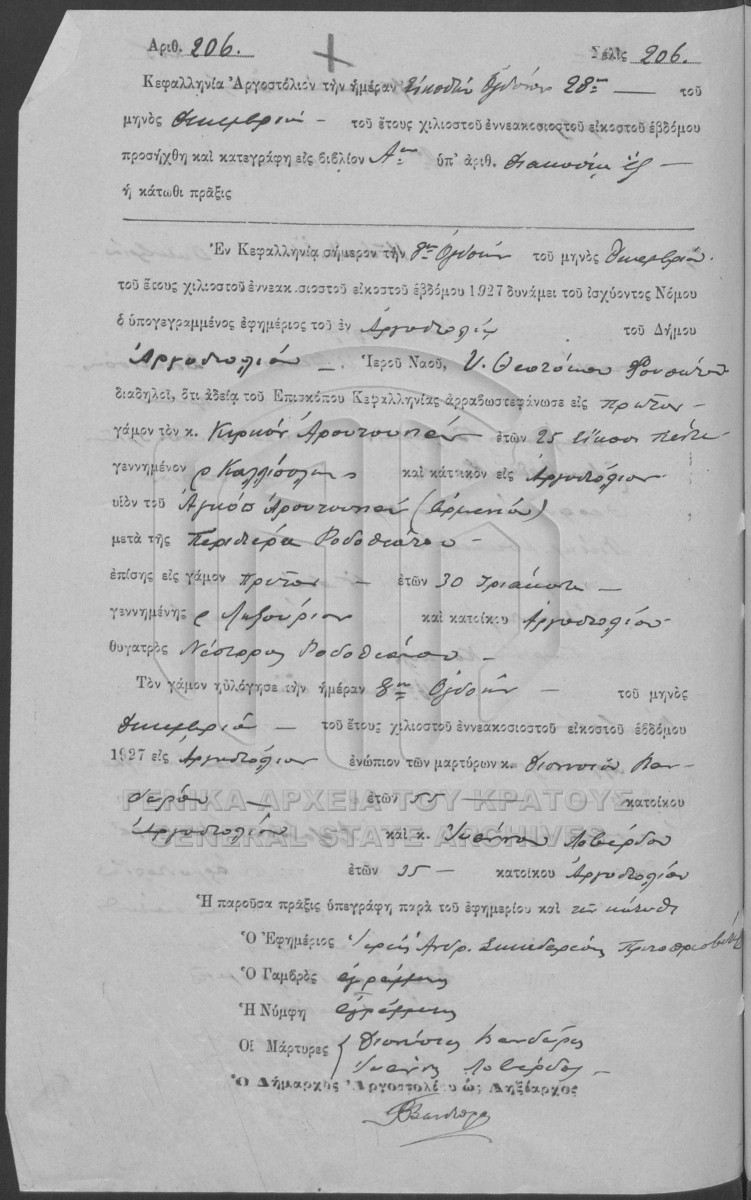 Ἀριθ. 206. Σελὶς 206.
Κεφαλληνία Ἀργοστόλιον τὴν ἡμέραν Εἰκοστὴν Ὀγδόην 28ην — τοῦ
μηνὸς Δεκεμβρίου – τοῦ ἔτους χιλιοστοῦ ἐννεακοσιοστοῦ εἰκοστοῦ ἑβδόμου
προσήχθη καὶ κατεγράφη εἰς βιβλίον Αον ὑπ' ἀριθ. διακόσια ἕξ —
ἡ κάτωθι πρᾶξις
Ἐν Κεφαλληνίᾳ σήμερον τὴν 8ην Ὀγδόην τοῦ μηνὸς Δεκεμβρίου
τοῦ ἔτους χιλιοστοῦ ἐννεακοσιοστοῦ εἰκοστοῦ ἑβδόμου 1927 δυνάμει τοῦ ἰσχύοντος Νόμου
ὁ ὑπογεγραμμένος ἐφημέριος τοῦ ἐν Ἀργοστολίῳ τοῦ Δήμου
Ἀργοστολίου – Ἱεροῦ Ναοῦ, Υ. Θεοτόκου
διαδηλοῖ, ὅτι ἀδείᾳ τοῦ Ἐπισκόπου Κεφαλληνίας ἀρραβωστεφάνωσε εἰς πρῶτον –
γάμον τὸν κ. Κιρκὸρ Ἀρουτουνιὰν ἐτῶν 25 εἴκοσι πέντε
γεννημένον Καλλίπολιν καὶ κάτοικον εἰς Ἀργοστόλιον
υἱὸν τοῦ Ἀγκὸπ Ἀρουτουνιὰν (Ἀρμενίου)
μετὰ τῆς Περιστέρα Ροδοθεάτου –
ἐπίσης εἰς γάμον πρῶτον – ἐτῶν 30 τριάκοντα –
γεννημένης Ληξούριον καὶ κατοίκου Ἀργοστολίου
θυγατρὸς Νέστορος Ροδοθεάτου –
Τὸν γάμον ηὐλόγησε τὴν ἡμέραν 8ην Ὀγδόην – τοῦ μηνὸς
Δεκεμβρίου – τοῦ ἔτους χιλιοστοῦ ἐννεακοσιοστοῦ εἰκοστοῦ ἑβδόμου
1927 εἰς Ἀργοστόλιον ἐνώπιον τῶν μαρτύρων κ. Διονυσίου Βαν-
δώρου — ἐτῶν 55 — κατοίκου
Ἀργοστολίου καὶ κ. Ἰωάννου Λοβέρδου
ἐτῶν 35 – κατοίκου Ἀργοστολίου
Ἡ παροῦσα πρᾶξις ὑπεγράφη παρὰ τοῦ ἐφημερίου καὶ τῶν κάτωθι
Ὁ Ἐφημέριος Ἱερεὺς Ἀνδρ. Πρωτοπρεσβύτερος
Ὁ Γαμβρὸς ἀγράμματος
Ἡ Νύμφη ἀγράμματος
Οἱ Μάρτυρες Διονύσιος
Ἰωάννης Λοβέρδος –
Ὁ Δήμαρχος Ἀργοστολίου ὡς Ληξίαρχος
ΓΕΝΙΚΑ ΑΡΧΕΙΑ ΤΟΥ ΚΡΑΤΟΥΣ
GENERAL STATE ARCHIVES